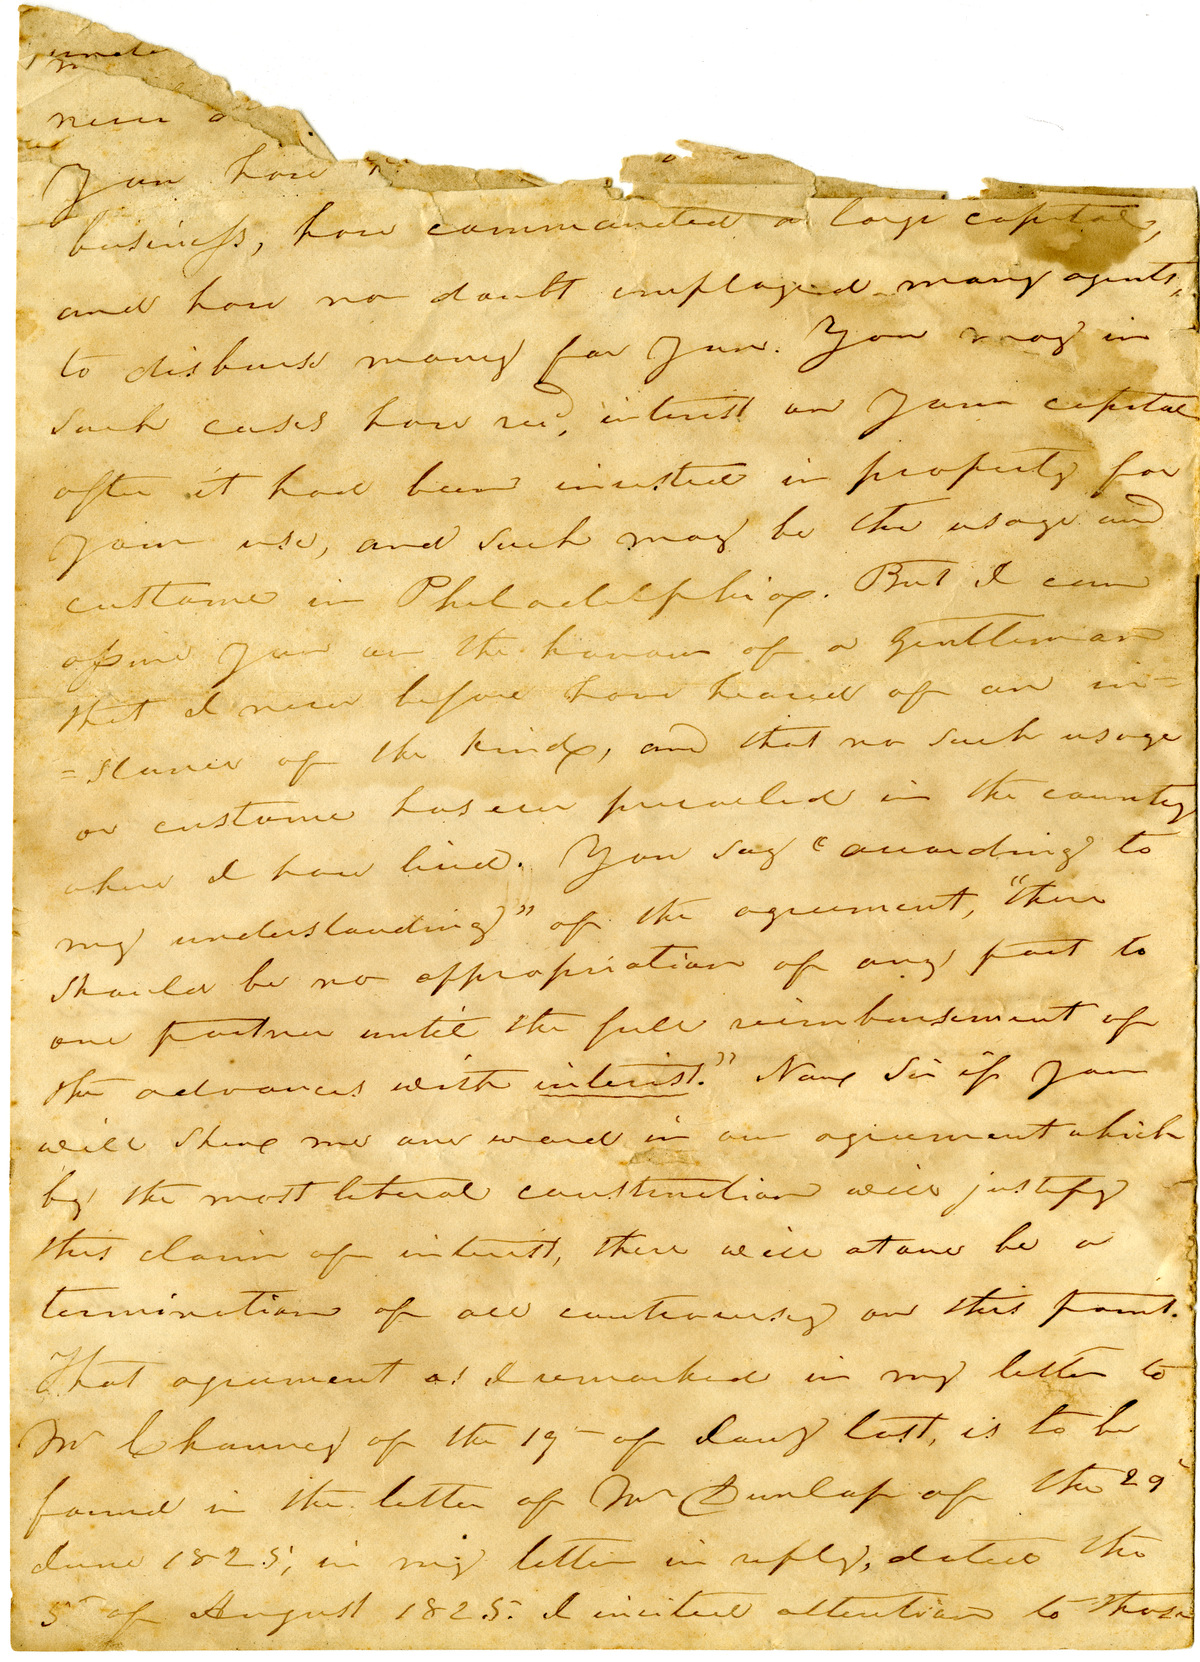 unde
never
You have
business, have commanded a large capital,
and have no doubt employed many agents,
to disburse money for you. You may in
such cases have recd, interest on your capital
after it had been invested in property for
your use, and such may be the usage and
custome in Philadelphia. But I can
assure you on the honour of a Gentleman
that I never before have heared of an in=
=stance of the kind, and that no such usage
or custome has ever prevailed in the country
where I have lived. You say "according to
my understanding" of the agreement, "there
should be no appropriation of any part to
one partner until the full reimbursement of
the advances with interest." Now Sir if you
will shew me one word in our agreement which
by the most liberal construction will justify
this claim of interest, there will at once be a
termination of all controversy on this point.
That agreement as I remarked in my letter to
Mr Chauncey of the 19 of Jany last, is to be
found in the letter of Mr Dunlap of the 29
June 1825, in my letter in reply, dated the
5 of August 1825. I invited attention to those